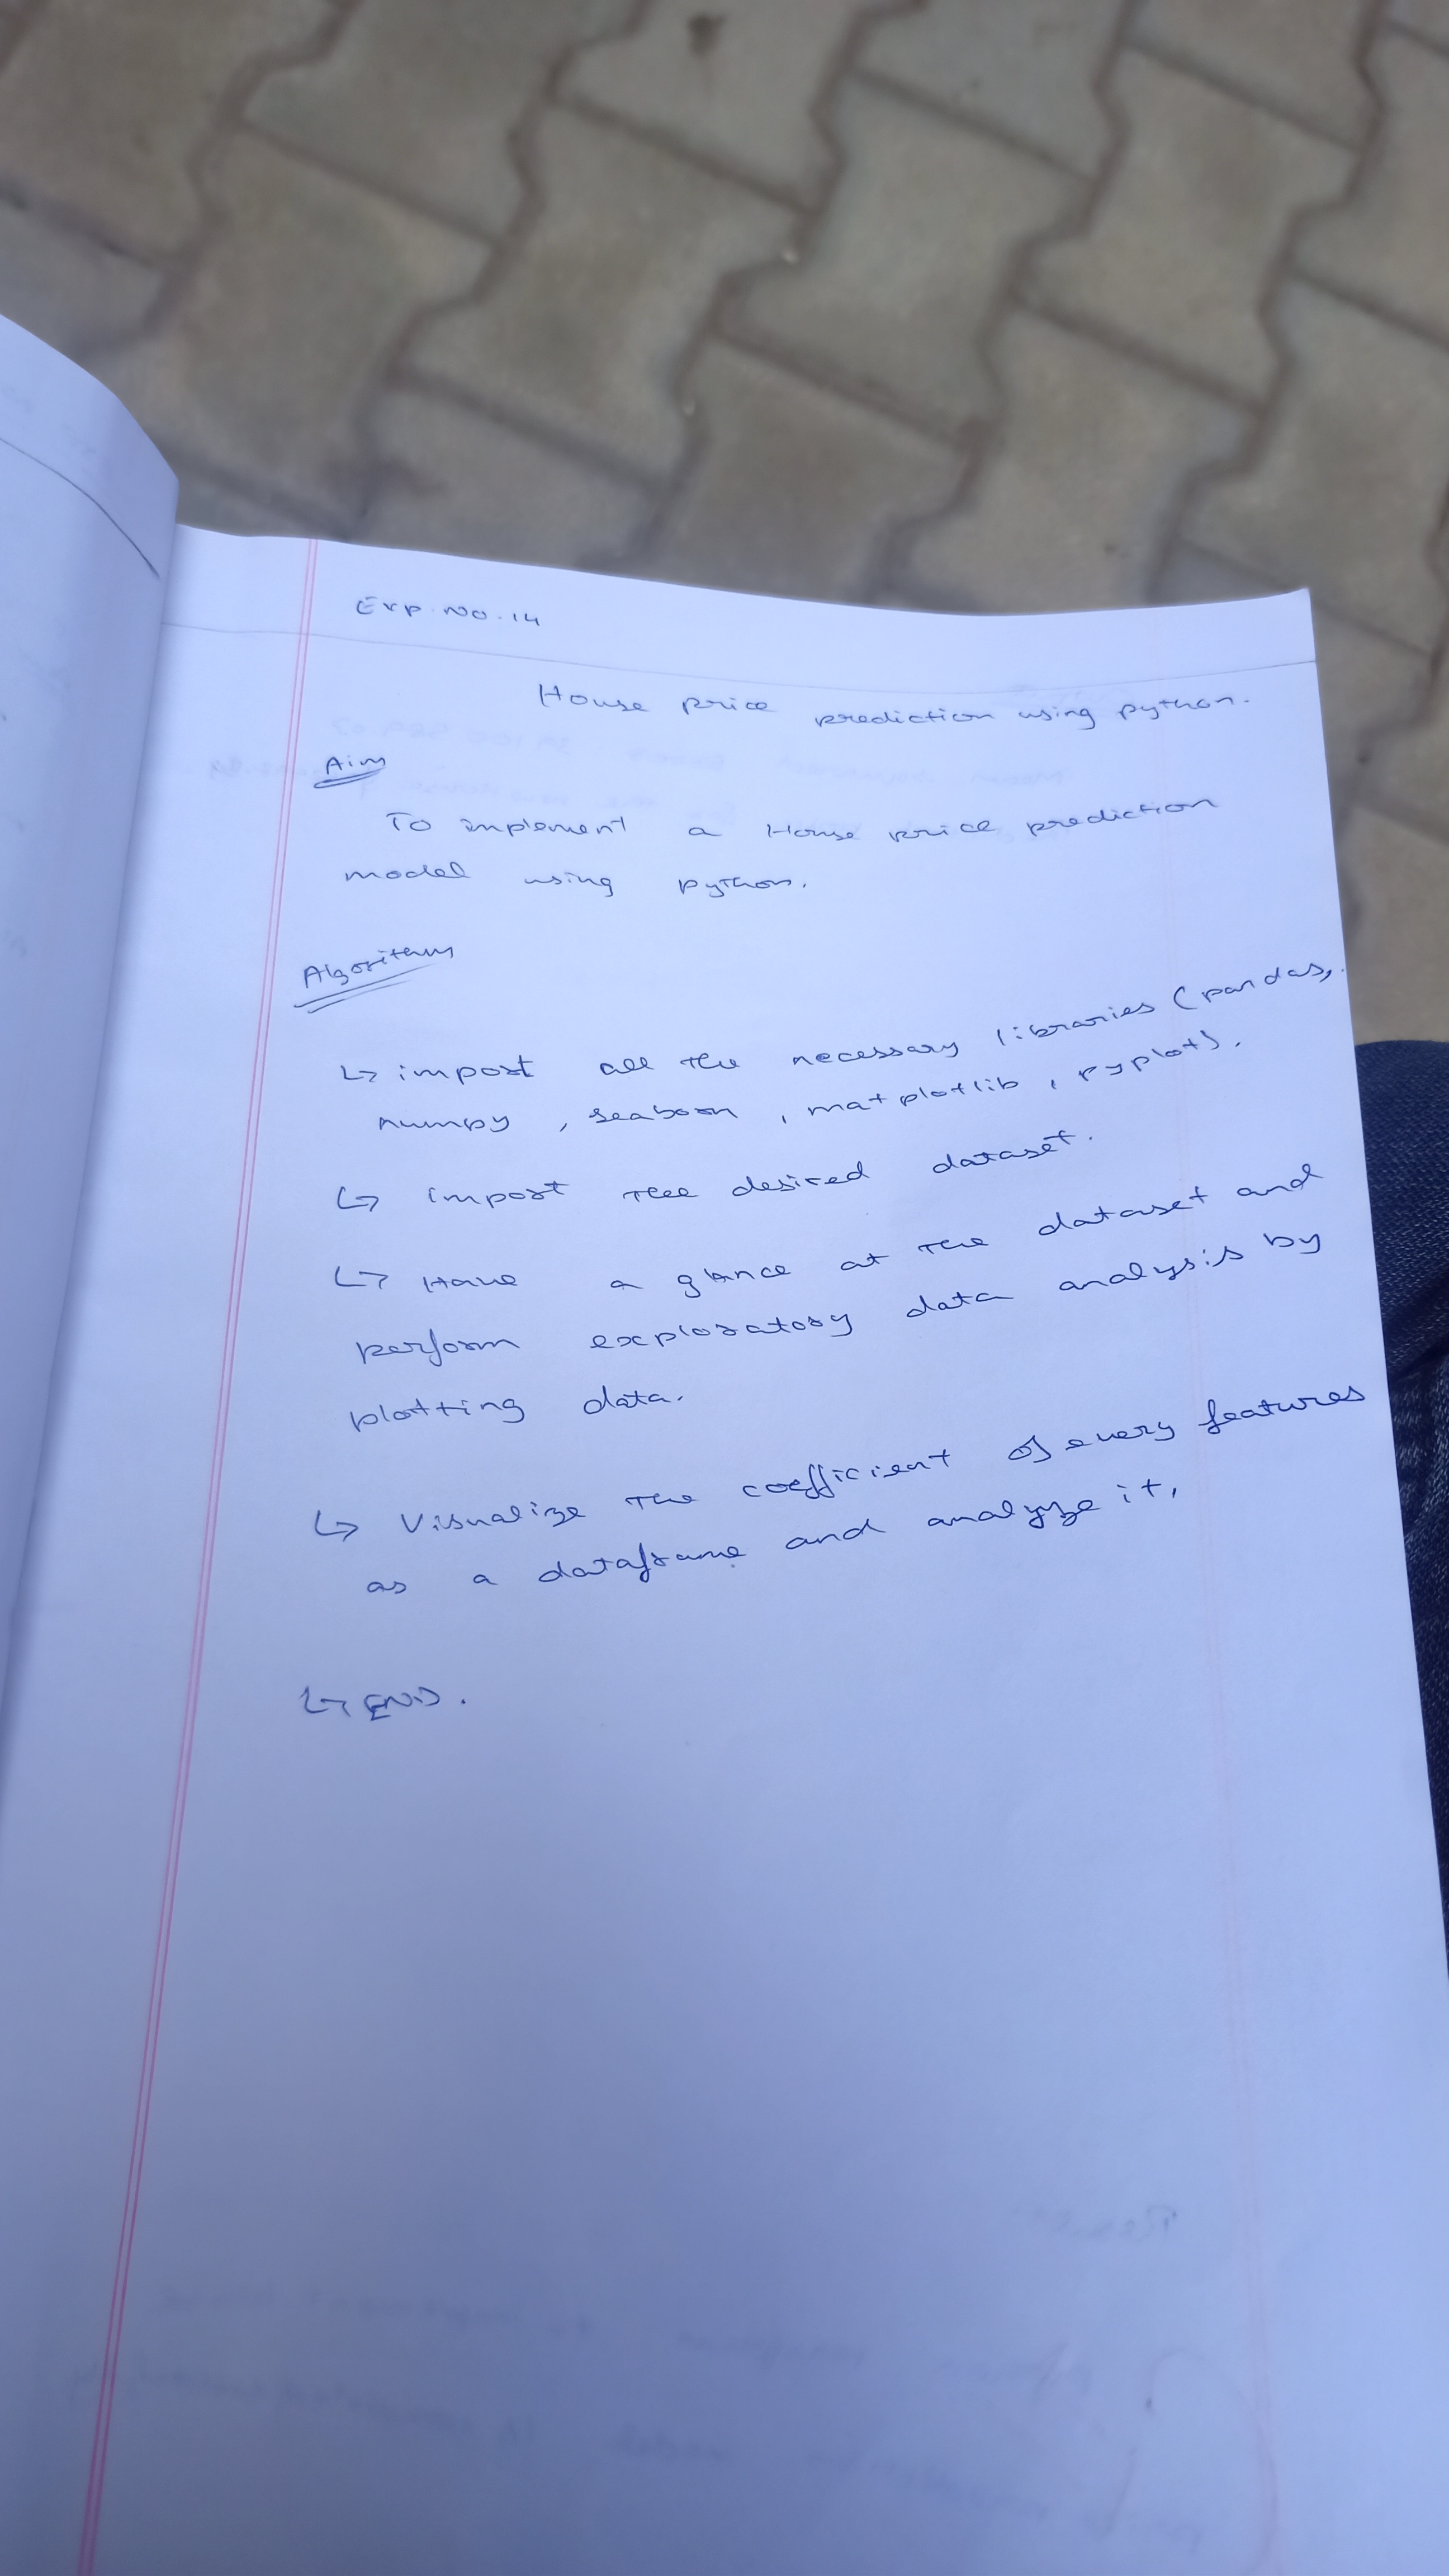 Exp. No. 14
House price prediction using python.
Aim
To implement a House price prediction
model using python.
Algorithm
↳ import all the necessary libraries (pandas,
numpy, seaborn, matplotlib, pyplot).
↳ import the desired dataset.
↳ Have a glance at the dataset and
perform exploratory data analysis by
plotting data.
↳ Visualize the coefficient of every features
as a dataframe and analyze it.
↳ END.